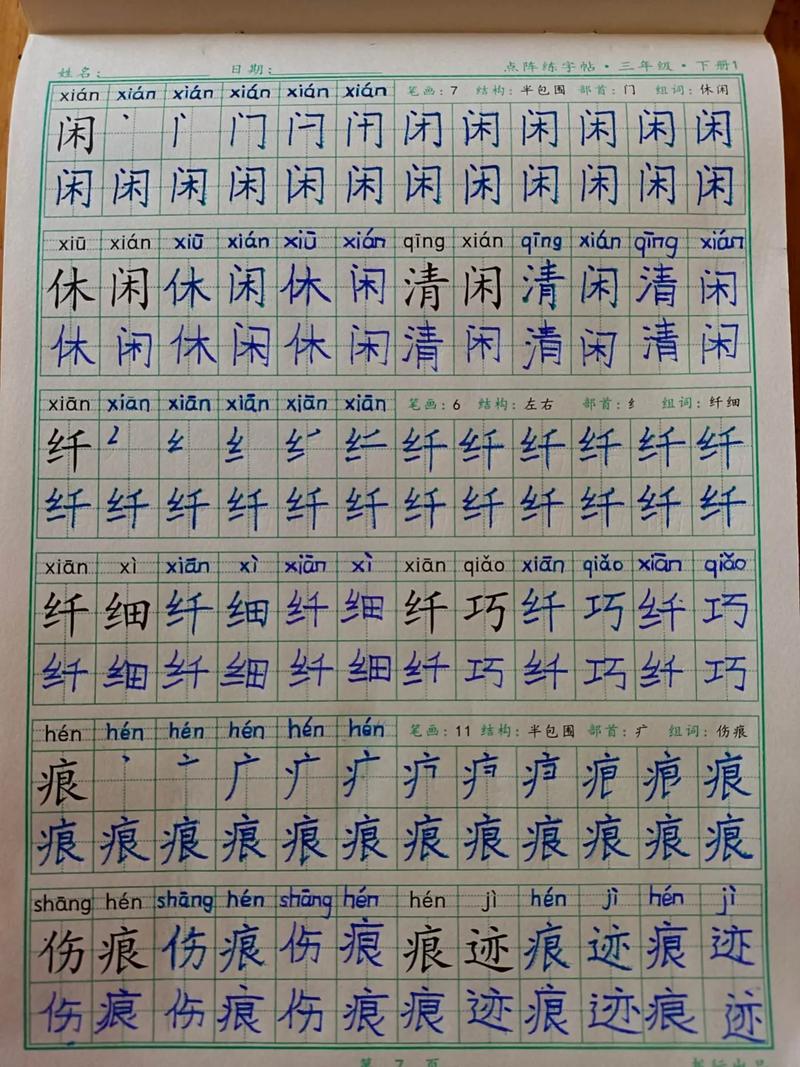 姓名: 日期: 点阵练字帖·三年级·下册1
xián xián xián xián xián xián 笔画:7 结构:半包围 部首:门 组词:休闲
闲 丶 门 闲 闲 闲 闲 闲 闲
闲 闲 闲 闲 闲 闲 闲 闲 闲 闲 闲 闲
xiū xián xiū xián xiū xián qīng xián qīng xián qīng xián
休 闲 休 闲 休 闲 清 闲 清 闲 清 闲
休 闲 休 闲 休 闲 清 闲 清 闲 清 闲
xiān xiān xiān xiān xiān xiān 笔画:6 结构:左右 部首:纟 组词:纤细
纤 纟 纤 纤 纤 纤 纤 纤
纤 纤 纤 纤 纤 纤 纤 纤 纤 纤 纤 纤
xiān xì xiān xì xiān xì xiān qiǎo xiān qiǎo xiān qiǎo
纤 细 纤 细 纤 细 纤 巧 纤 巧 纤 巧
纤 细 纤 细 纤 细 纤 巧 纤 巧 纤 巧
hén hén hén hén hén hén 笔画:11 结构:半包围 部首:疒 组词:伤痕
痕 丶 亠 广 疒 痕 痕
痕 痕 痕 痕 痕 痕 痕 痕 痕 痕 痕 痕
shāng hén shāng hén shāng hén hén jì hén jì hén jì
伤 痕 伤 痕 伤 痕 痕 迹 痕 迹 痕 迹
伤 痕 伤 痕 伤 痕 痕 迹 痕 迹 痕 迹
第 7 页